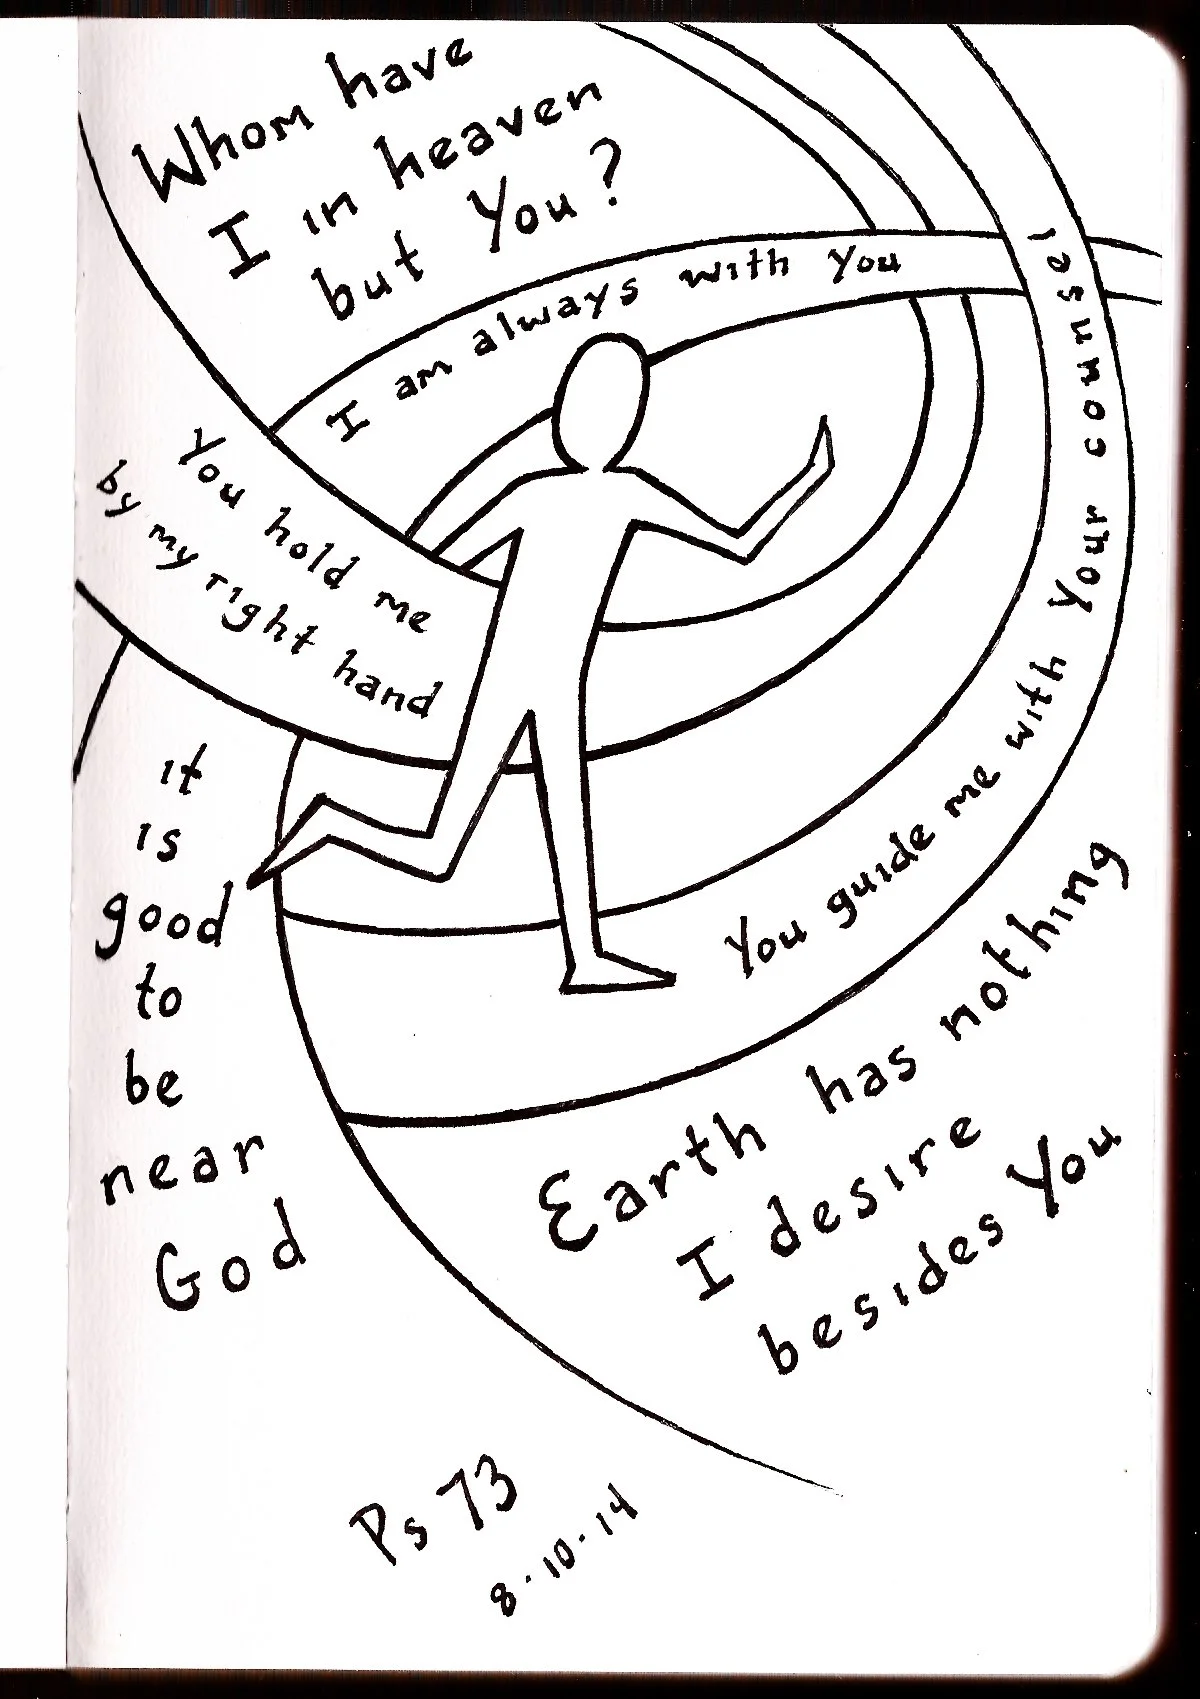 Whom have
I in heaven
but You?
I am always with You
You hold me
by my right hand
You guide me with Your counsel
it
is
good
to
be
near
God
Earth has nothing
I desire
besides You
Ps 73
8.10.14